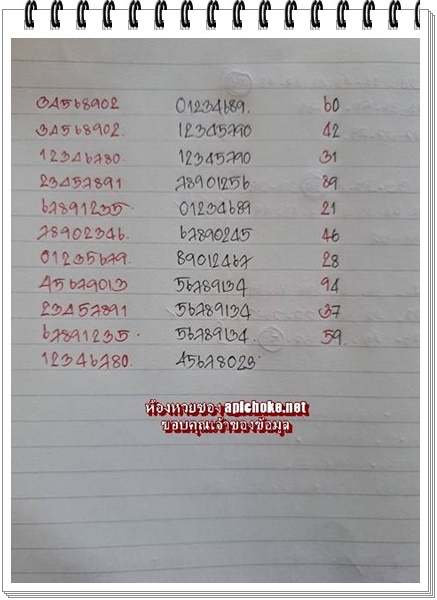 34568902 01234689. 60
34568902 12345790 42
12346780. 12345790 31
23457891 78901256 89
67891235. 01234689 21
78902346. 67890245 46
01235679. 89012467 28
45679013 56789134 94
23457891 56789134 37
67891235. 56789134 59
12346780. 45678023
ห้องหวยซอง apichoke.net
ขอบคุณเจ้าของข้อมูล